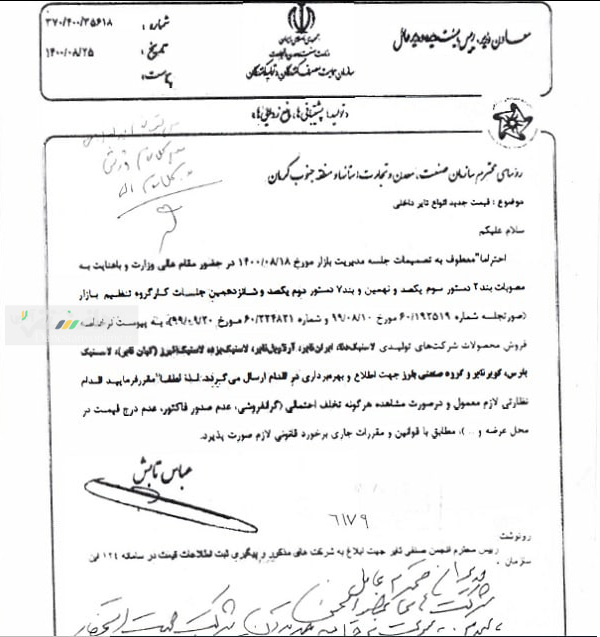 معاون وزیر، رییس هیئت مدیره و مدیر عامل
جمهوری اسلامی ایران
وزارت صنعت، معدن و تجارت
سازمان حمایت مصرف کنندگان و تولیدکنندگان
شماره : ۳۷۰/۴۰۰/۳۵۶۱۸
تاریخ : ۱۴۰۰/۰۸/۲۵
پیوست:
«تولید؛ پشتیبانی ها، مانع زدایی ها»
روسای محترم سازمان صنعت، معدن و تجارت استانها و منطقه جنوب کرمان
موضوع : قیمت جدید انواع تایر داخلی
سلام علیکم
احتراما" معطوف به تصمیمات جلسه مدیریت بازار مورخ ۱۴۰۰/۰۸/۱۸ در حضور مقام عالی وزارت و باعنایت به
مصوبات بند۲ دستور سوم یکصد و نهمین و بند۷ دستور دوم یکصد و شانزدهمین جلسات کارگروه تنظیم بازار
(صورتجلسه شماره ۶۰/۱۹۲۵۱۹ مورخ ۹۹/۰۸/۱۰ و شماره ۶۰/۲۲۴۸۲۱ مورخ ۹۹/۰۹/۲۰) به پیوست نرخنامه
فروش محصولات شرکت‌های تولیدی لاستیک دنا، ایران تایر، آرتاویل تایر، لاستیک یزد، لاستیک البرز (کیان تایر)، لاستیک
پارس، کویرتایر و گروه صنعتی بارز جهت اطلاع و بهره‌برداری در اقدام ارسال می‌گردد. لذا لطفا" مقرر فرمایید اقدام
نظارتی لازم معمول و درصورت مشاهده هرگونه تخلف احتمالی (گرانفروشی، عدم صدور فاکتور، عدم درج قیمت در
محل عرضه و ... )، مطابق با قوانین و مقررات جاری برخورد قانونی لازم صورت پذیرد.
عباس تابش
۶۱۷۹
رونوشت
رییس محترم انجمن صنفی تایر جهت ابلاغ به شرکت های مذکور و پیگیری ثبت اطلاعات قیمت در سامانه ۱۲۴ این
سازمان .
مدیران محترم عامل